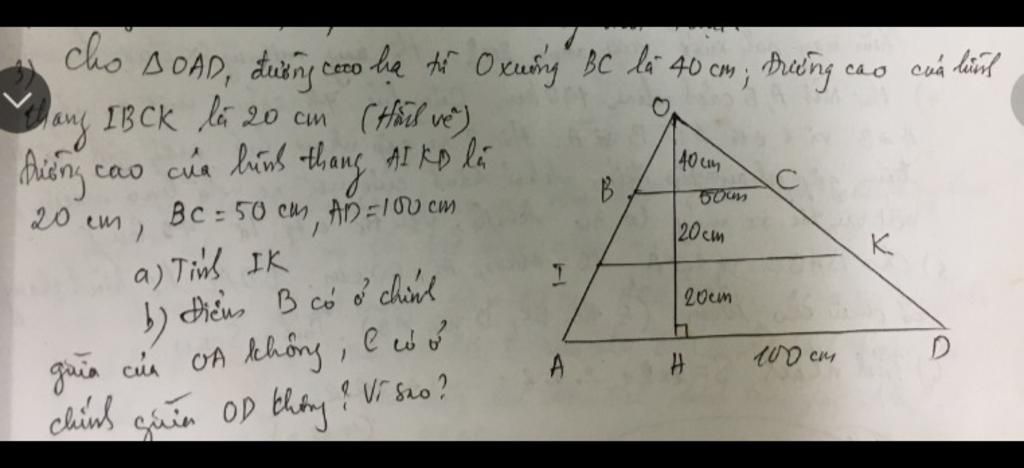 3) Cho ΔOAD, đường cao hạ từ O xuống BC là 40 cm; Đường cao của hình
thang IBCK là 20 cm (Hình vẽ)
Đường cao của hình thang AIKD là
20 cm, BC = 50 cm, AD = 100 cm
a) Tính IK
b) Điểm B có ở chính
giữa của OA không, C có ở
chính giữa OD không? Vì sao?
O
40cm
B
C
50cm
20cm
K
I
20cm
A
H
100 cm
D